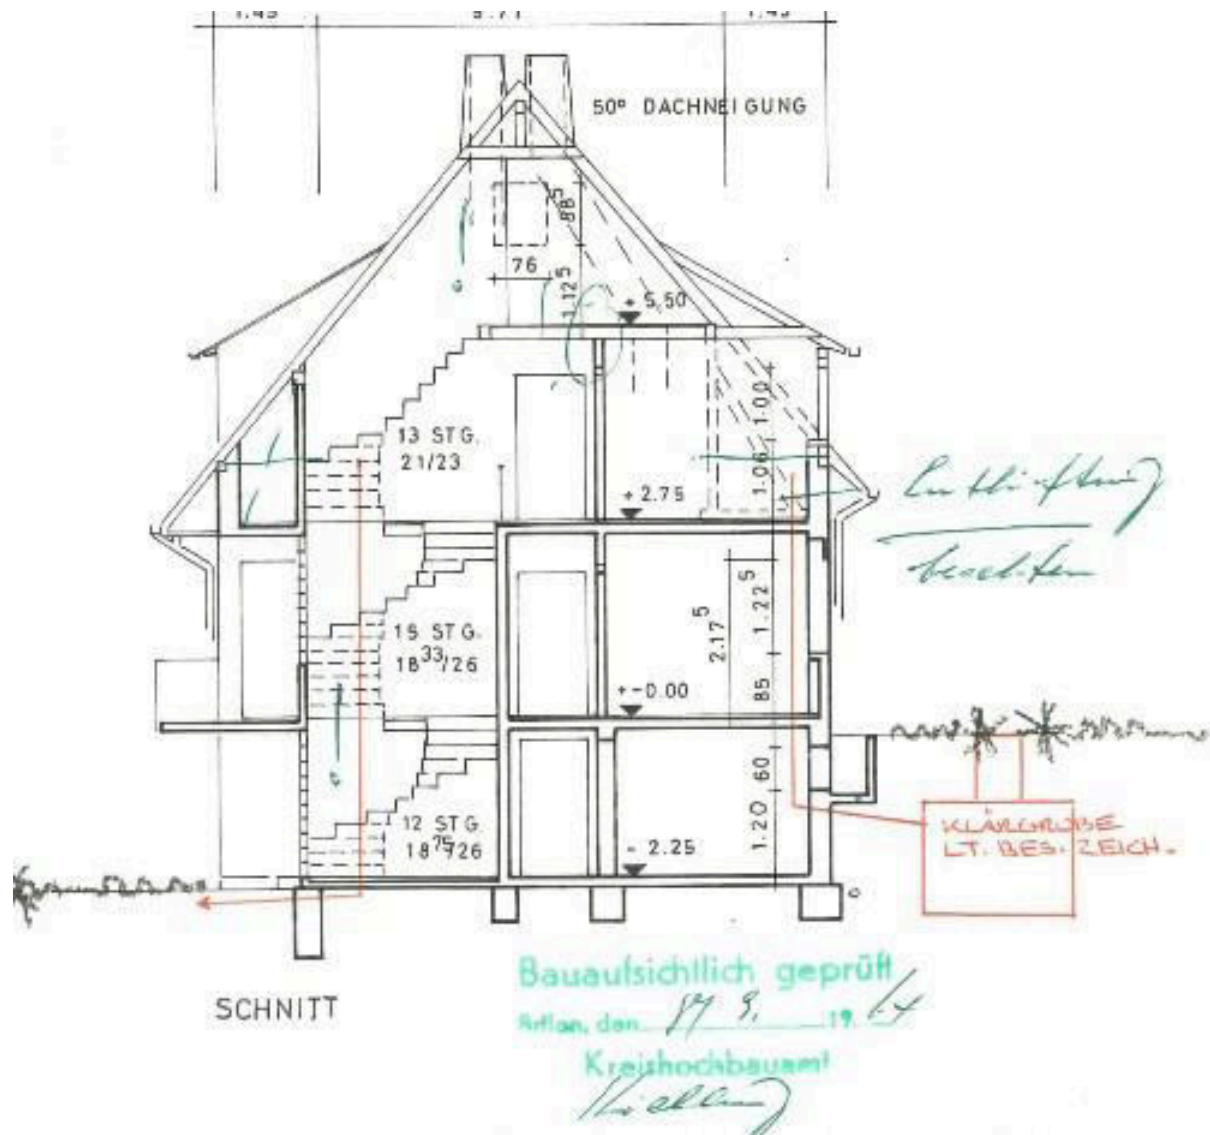 50° DACHNEIGUNG
88⁵
76
1.12⁵
+ 5.50
13 STG.
21/23
1.00
1.06
+ 2.75
Entlüftung
beachten
15 STG.
18³³/26
2.17⁵
1.22⁵
85
+-0.00
60
1.20
12 STG
18⁷⁵/26
- 2.25
KLÄRGRUBE
LT. BES. ZEICH.
SCHNITT
Bauaufsichtlich geprüft
den 19.
Kreishochbauamt